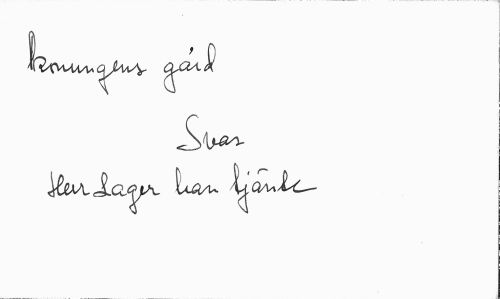 konungens gård
Svar
Herr Lager han tjänte